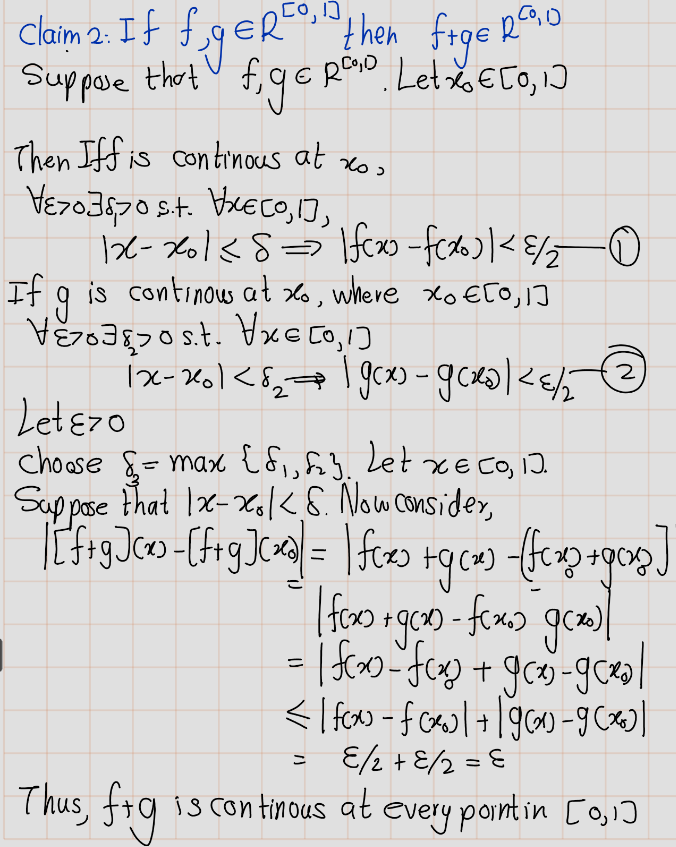 Claim 2: If f,g ∈ R^[0,1] then f+g ∈ R^[0,1]
Suppose that f,g ∈ R^[0,1]. Let x₀ ∈ [0,1]
Then Iff is continous at x₀,
∀ε>0 ∃δ₁>0 s.t. ∀x∈[0,1],
|x-x₀| < δ ⟹ |f(x) -f(x₀)| < ε/2 — ①
If g is continous at x₀, where x₀ ∈ [0,1]
∀ε>0 ∃δ₂>0 s.t. ∀x ∈ [0,1]
|x-x₀| < δ₂ ⟹ |g(x) - g(x₀)| < ε/2 — ②
Let ε>0
choose δ₃ = max {δ₁, δ₂}. Let x ∈ [0,1].
Suppose that |x-x₀| < δ. Now consider,
|[f+g](x) -[f+g](x₀)| = |f(x) +g(x) -(f(x₀)+g(x₀)]
= |f(x) +g(x) - f(x₀) - g(x₀)|
= |f(x) - f(x₀) + g(x) -g(x₀)|
≤ |f(x) - f(x₀)| + |g(x) -g(x₀)|
= ε/2 + ε/2 = ε
Thus, f+g is continous at every point in [0,1]